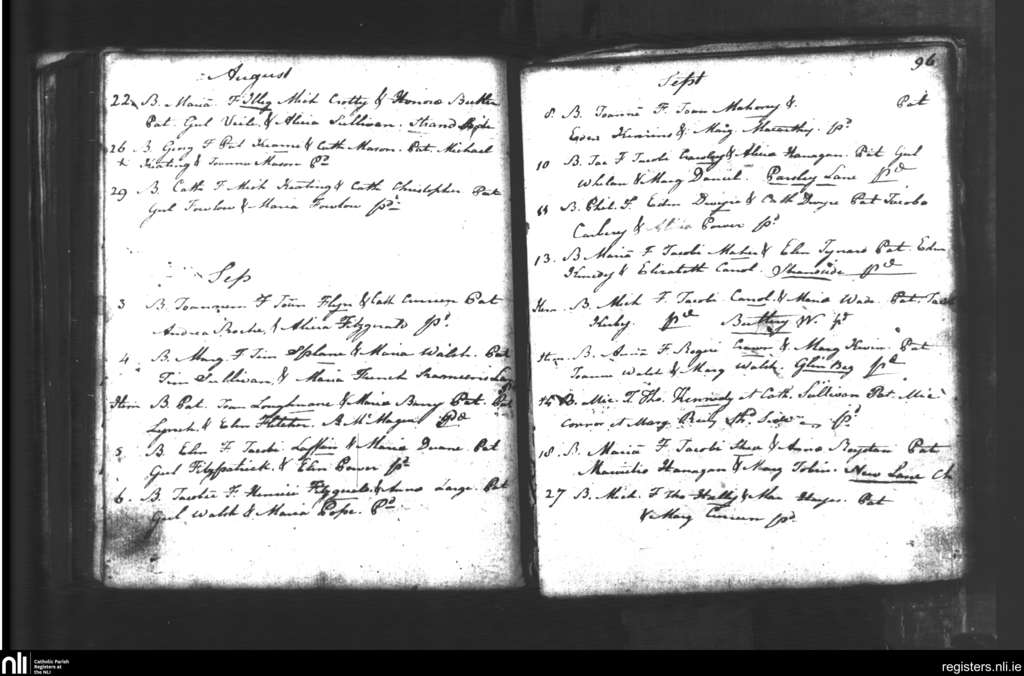 August
22 B. Maria F Illeg Mich Crotty & Honora Butler
Pat Gul & Alicia Sullivan. Strand Side
26 B. Georg F Pat Hearne & Cath Mason. Pat. Michael
Keating & Mason Pd
29 B Cath F Mich Keating & Cath Christopher Pat
Gul Fowlow & Maria Fowlow pd
Sep
3 B. Joannem F Joan Flyn & Cath Curreen Pat
Andrea Roche, & Alicia Fitzgerald pd
4 B. Mary F Tim Splane & Maria Walsh. Pat
Tim Sullivan, & Maria French
Item B. Pat. Joan & Maria Barry Pat. Pat
Lynch & Elen Fletcher. B McMagra pd
5 B Elen F Jacobi Laffan & Maria Duane Pat
Gul Fitzpatrick & Elen Power pd
6 B. Jacobu F. Henrici Fitzgerald & Anna Large. Pat
Gul Walsh & Maria Pope. Pd
96
Sept
8 B. Joanne F. Joan Mahony & Pat
Edwd & Marg. Macarthy. pd
10 B. Jac F Jacobi & Alicia Hanagan. Pat Gul
Whelan & Mary Daniel. Parsley Lane pd
11 B. Phil. F. Edm & Cath Dwyre Pat Jacobo
Carbery & Power pd
13. B Maria F Jacobi Maher & Elen Pat. Edm
Kennedy & Elizabeth Carrol. Strandside pd
Item B. Mich F. Jacobi Carrol & Maria Wade. Pat. Jacob
Kirby. pd Buttery W. pd
Item B. Anna F Rogeri & Mary Kirwin. Pat
Joanne Walsh & Mary Walsh. Glin Beg pd
15 B. Mic. F Tho. Kennedy et Cath. Sullivan Pat. Mic
Connor et Mary Side pd
18. B. Maria F Jacobi Shea & Anna Boyston Pat
Hanagan & Mary Tobin. New Lane Ch
27 B. Mich. F Tho Hally & Mar Pat
& Mary Curreen pd.
nli Catholic Parish
Registers at
the NLI
registers.nli.ie